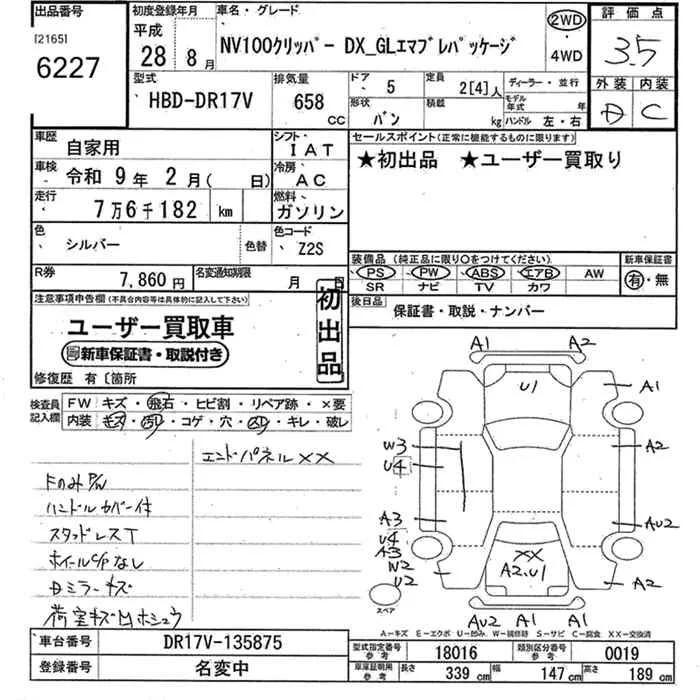 出品番号
[2165]
6227
初度登録年月
平成
28年 8月
車名・グレード
NV100クリッパー DX_GLエマブレパッケージ
2WD
・
4WD
評価点
3.5
外装 内装
D C
型式
HBD-DR17V
排気量
658 CC
ドア 5
形状 バン
定員 2[4]人
積載 kg
ディーラー・並行
モデル年式 年
ハンドル 左・右
車歴 自家用
シフト IAT
車検 令和 9年 2月( 日)
冷房 AC
走行 7万6千182 km
燃料 ガソリン
色 シルバー
色替
色コード Z2S
R券 7,860円
名変通知期限 月 日
セールスポイント(正常に機能するものに限ります)
★初出品 ★ユーザー買取り
装備品 (純正品に限り○をつけてください)
PS ・ PW ・ ABS ・ エアB ・ AW
SR ナビ TV カワ
新車保証書
有・無
後日品 保証書・取説・ナンバー
注意事項申告欄(不具合内容等は具体的に記入して下さい)
ユーザー買取車
新車保証書・取説付き
初出品
修復歴 有〔箇所
検査員記入欄
FW キズ・飛石・ヒビ割・リペア跡・×要
内装 キズ・凹リ・コゲ・穴・汚レ・キレ・破レ
エンドパネル××
FのみP/W
ハンドルカバー付
スタッドレスT
ホイールC/Pなし
Dミラーキズ
荷室キズMホシュウ
A1 A2
U1
A1
W3
U4
A2
A3
U4
A3
W2
U2
AU2
XX
A2.U1
A2
スペア
AU2 A1 A1
A－キズ E－エクボ U－凹み W－補修跡 S－サビ C－腐食 XX－交換済
車台番号 DR17V-135875
登録番号 名変中
型式指定番号 参考 18016
類別区分番号 参考 0019
車庫証明用 参考 長さ 339 cm 幅 147 cm 高さ 189 cm